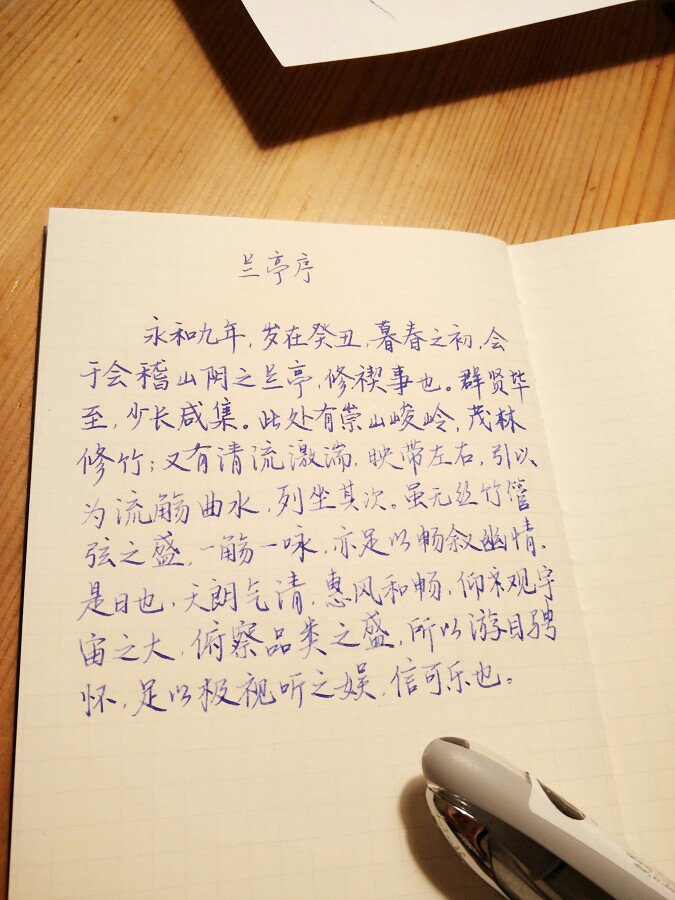 兰亭序
永和九年,岁在癸丑,暮春之初,会
于会稽山阴之兰亭,修禊事也。群贤毕
至,少长咸集。此处有崇山峻岭,茂林
修竹;又有清流激湍,映带左右,引以
为流觞曲水,列坐其次。虽无丝竹管
弦之盛,一觞一咏,亦足以畅叙幽情.
是日也,天朗气清,惠风和畅,仰观宇
宙之大,俯察品类之盛,所以游目骋
怀,足以极视听之娱,信可乐也。